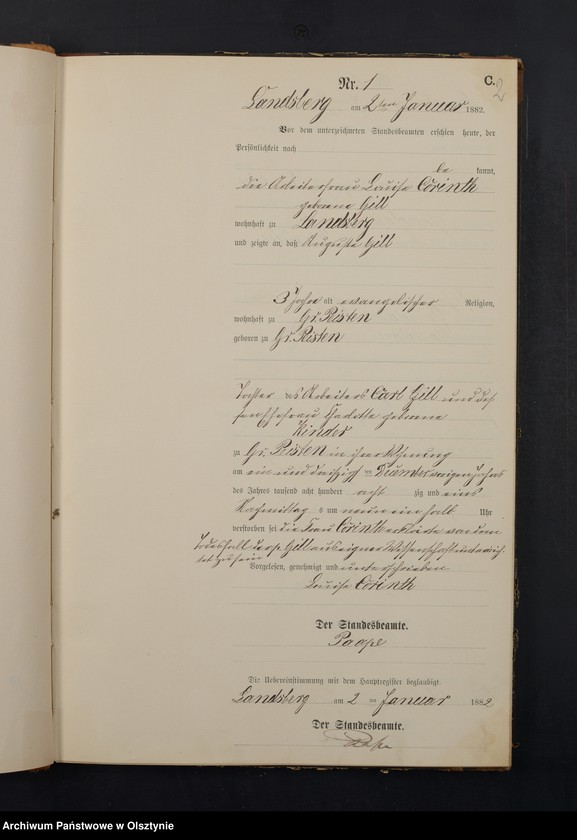 C.
2
Nr. 1
Landsberg am 2ten Januar 1882.
Vor dem unterzeichneten Standesbeamten erschien heute, der
Persönlichkeit nach
be kannt,
die Arbeiterfrau Louise Corinth
geborene Gill
wohnhaft zu Landsberg
und zeigte an, daß Auguste Gill
3 Jahr alt evangelischer Religion,
wohnhaft zu Gr. Peisten
geboren zu Gr. Peisten
Tochter des Arbeiters Carl Gill und des
sen Ehefrau geborene
Kinder
zu Gr. Peisten in ihrer Wohnung
am ein und dreißigsten Dezember vorigen Jahres
des Jahres tausend acht hundert acht zig und eins
Nachmittag s um neun ein halb Uhr
verstorben sei die Frau Corinth erklärte von dem
Todesfall der p. Gill aus eigner Wissenschaft unterrich
tet zu sein
Vorgelesen, genehmigt und unterschrieben
Louise Corinth
Der Standesbeamte.
Paape
Die Uebereinstimmung mit dem Hauptregister beglaubigt.
Landsberg am 2 ten Januar 1882
Der Standesbeamte.
Paape
Archiwum Państwowe w Olsztynie